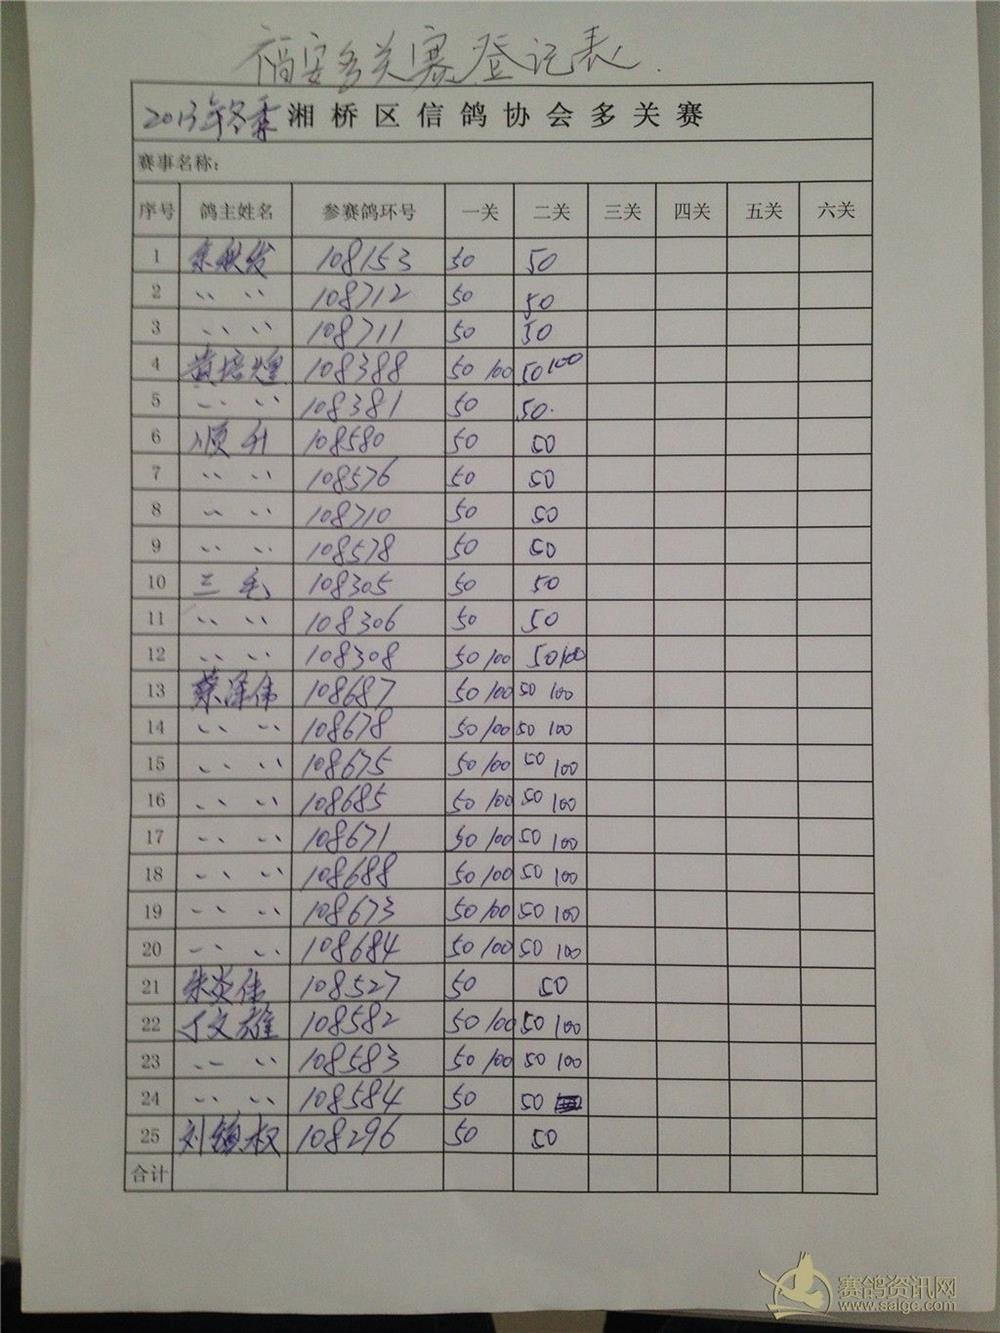 福安多关赛登记表
2013年冬季湘桥区信鸽协会多关赛
赛事名称:
序号 鸽主姓名 参赛鸽环号 一关 二关 三关 四关 五关 六关
1 108153 50 50
2 〃 〃 108712 50 50
3 〃 〃 108711 50 50
4 黄培煌 108388 50 100 50 100
5 〃 〃 108381 50 50.
6 顺升 108580 50 50
7 〃 〃 108576 50 50
8 〃 〃 108710 50 50
9 〃 〃 108578 50 50
10 三毛 108305 50 50
11 〃 〃 108306 50 50
12 〃 〃 108308 50 100 50 100
13 蔡泽伟 108687 50 100 50 100
14 〃 〃 108678 50 100 50 100
15 〃 〃 108675 50 100 50 100
16 〃 〃 108685 50 100 50 100
17 〃 〃 108671 50 100 50 100
18 〃 〃 108688 50 100 50 100
19 〃 〃 108673 50 100 50 100
20 〃 〃 108684 50 100 50 100
21 朱炎伟 108527 50 50
22 丁文雄 108582 50 100 50 100
23 〃 〃 108583 50 100 50 100
24 〃 〃 108584 50 50
25 刘镇权 108296 50 50
合计
赛鸽资讯网
www.saige.com